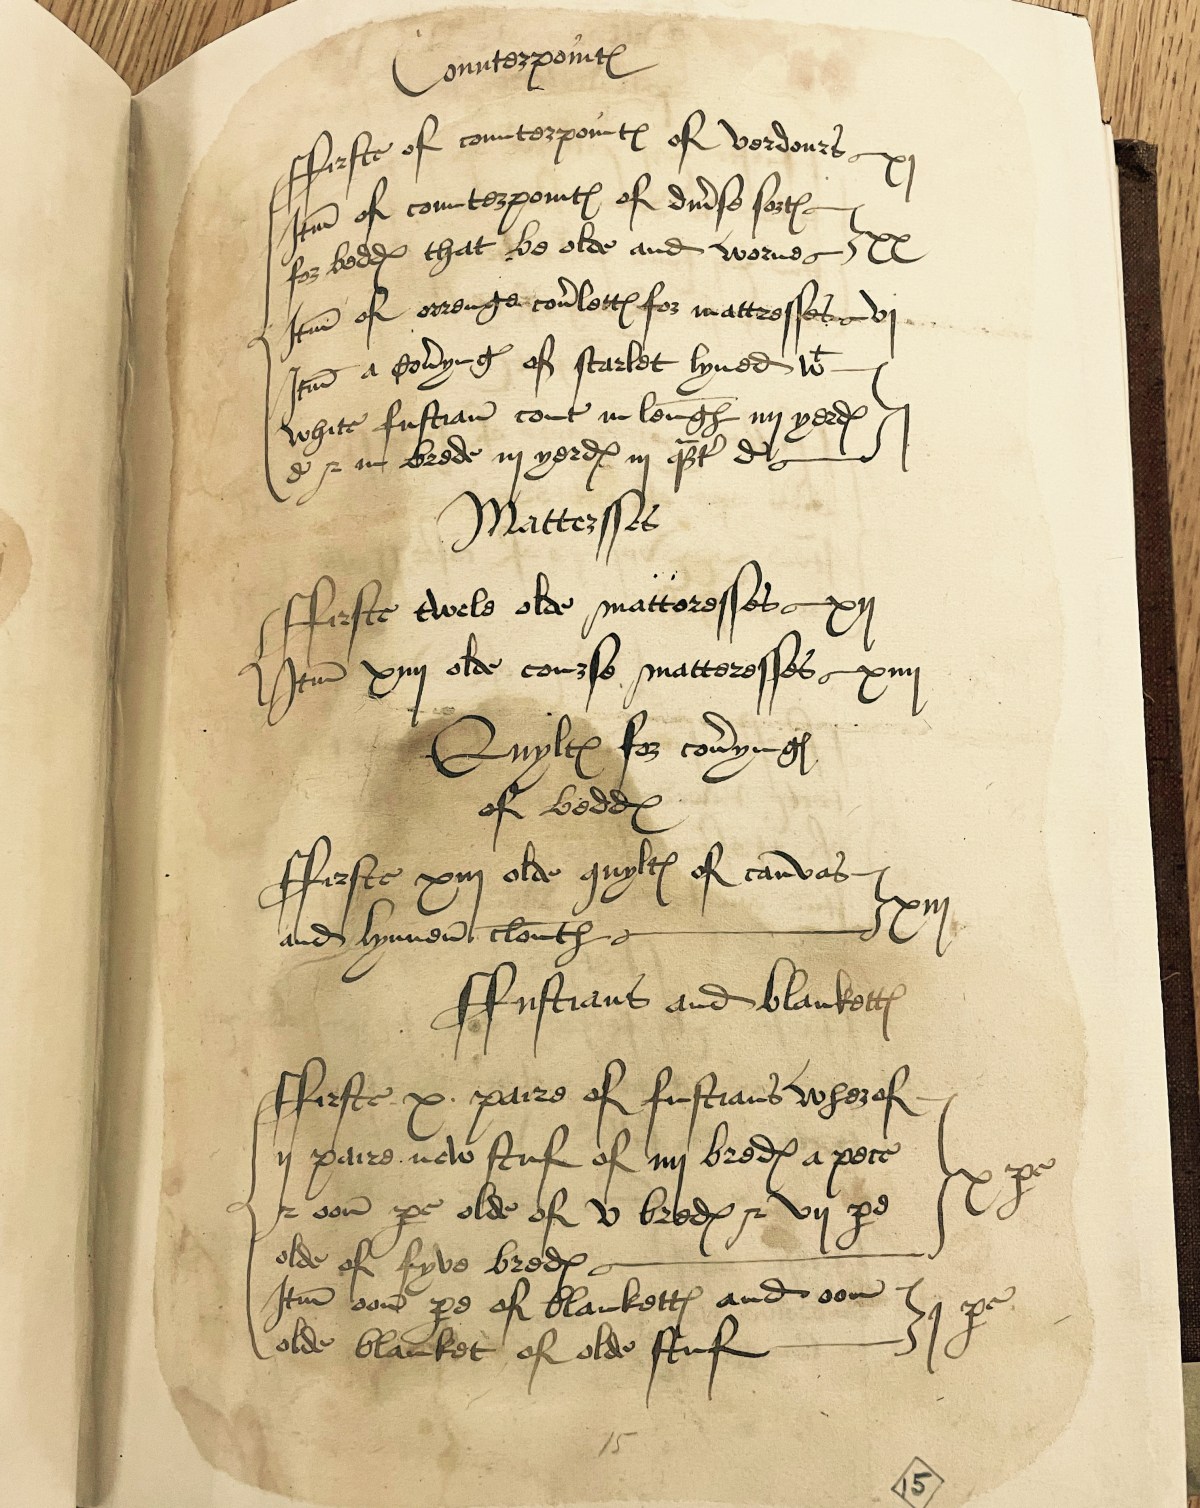 Counterpoint℮
ffirste of counterpoint℮ of verdours xj
Itm̅ of counterpoint℮ of diu'se sort℮
for bedd℮ that be olde and worne xx
Itm̅ of orrenge cou'lett℮ for mattresses vj
Itm̅ a cou'yng of scarlet lyned wt
white fustian̅ cont in length iiij yerd℮
d & in brede iij yerd℮ iij q̅rt' d j
Matteresses
ffirste twele olde matteresses xij
Itm̅ xiiij olde course matteresses xiiij
Quylt℮ for cou'yng℮
of bedd℮
ffirste xiij olde quylt℮ of canvas
and lynnen̅ clouth xiij
ffustians and blankett℮
ffirste x paire of fustians wherof
ij paire new stuf of iiij bred℮ a pece
& oon̅ pe olde of v bred℮ & vij pe
olde of fyve bred℮ x pe
Itm̅ oon̅ pe of blankett℮ and oon̅
olde blanket of olde stuf j pe
15
15